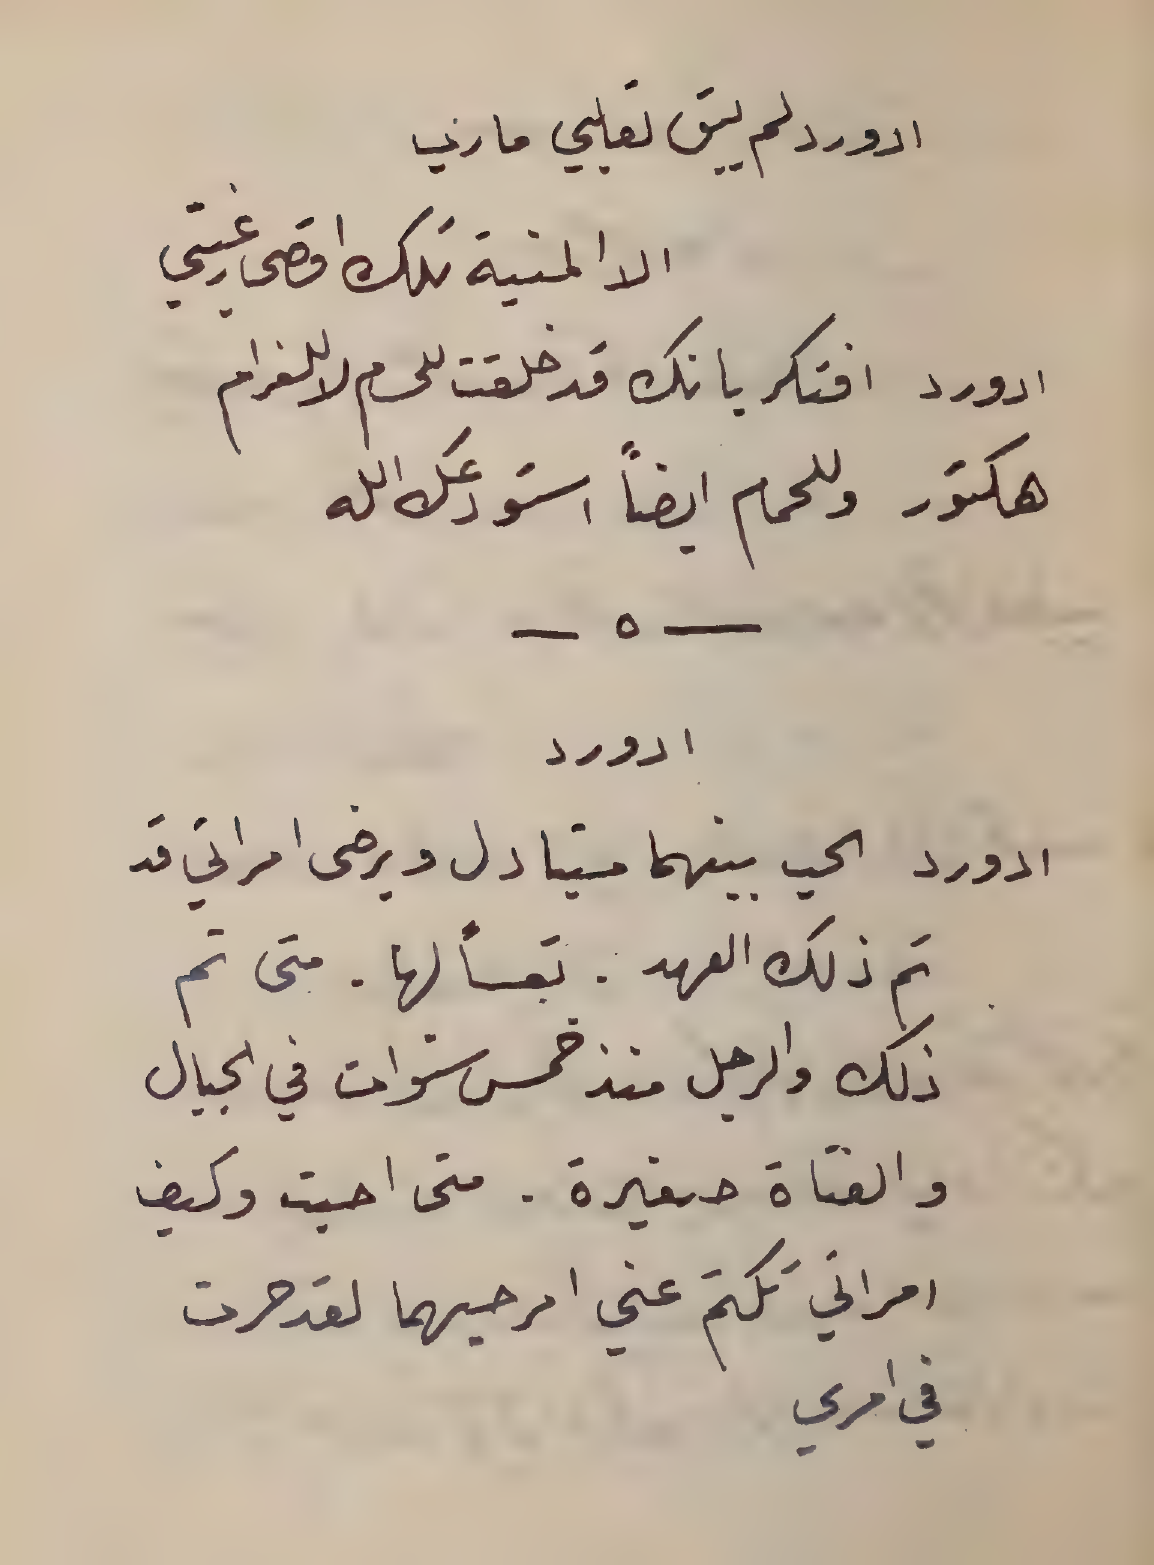 ادورد لم يبق لقلبي مارب
الا المنية تلك اقصى رغبتي
ادورد افتكر بانك قد خلقت للحرم لا للغرام
هكتور وللحمام ايضاً استودعك الله
— ٥ —
ادورد
ادورد الحب بينهما متبادل وبرضى امراتي قد
تم ذلك العهد . تعساً لها . متى تم
ذلك والرجل منذ خمس سنوات في الجبال
والفتاة صغيرة . متى احبت وكيف
امراتي تكتم عني امر حبهما لقد حرت
في امري